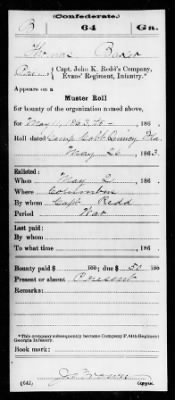 (Confederate.)
B 64 Ga.
Thomas
Capt. John K. Redd's Company,
Evans' Regiment, Infantry.*
Appears on a
Muster Roll
for bounty of the organization named above,
for May 11, 1863, 186
Roll dated Camp Cobb Quincy Fla.
May 26, 1863.
Enlisted:
When May 2, 186
Where Columbus
By whom Capt Redd
Period War
Last paid:
By whom
To what time , 186
Bounty paid $ 100; due $ 50 100
Present or absent Present
Remarks:
*This company subsequently became Company F, 64th Regiment Georgia Infantry.
Book mark:
(642) Copyist.